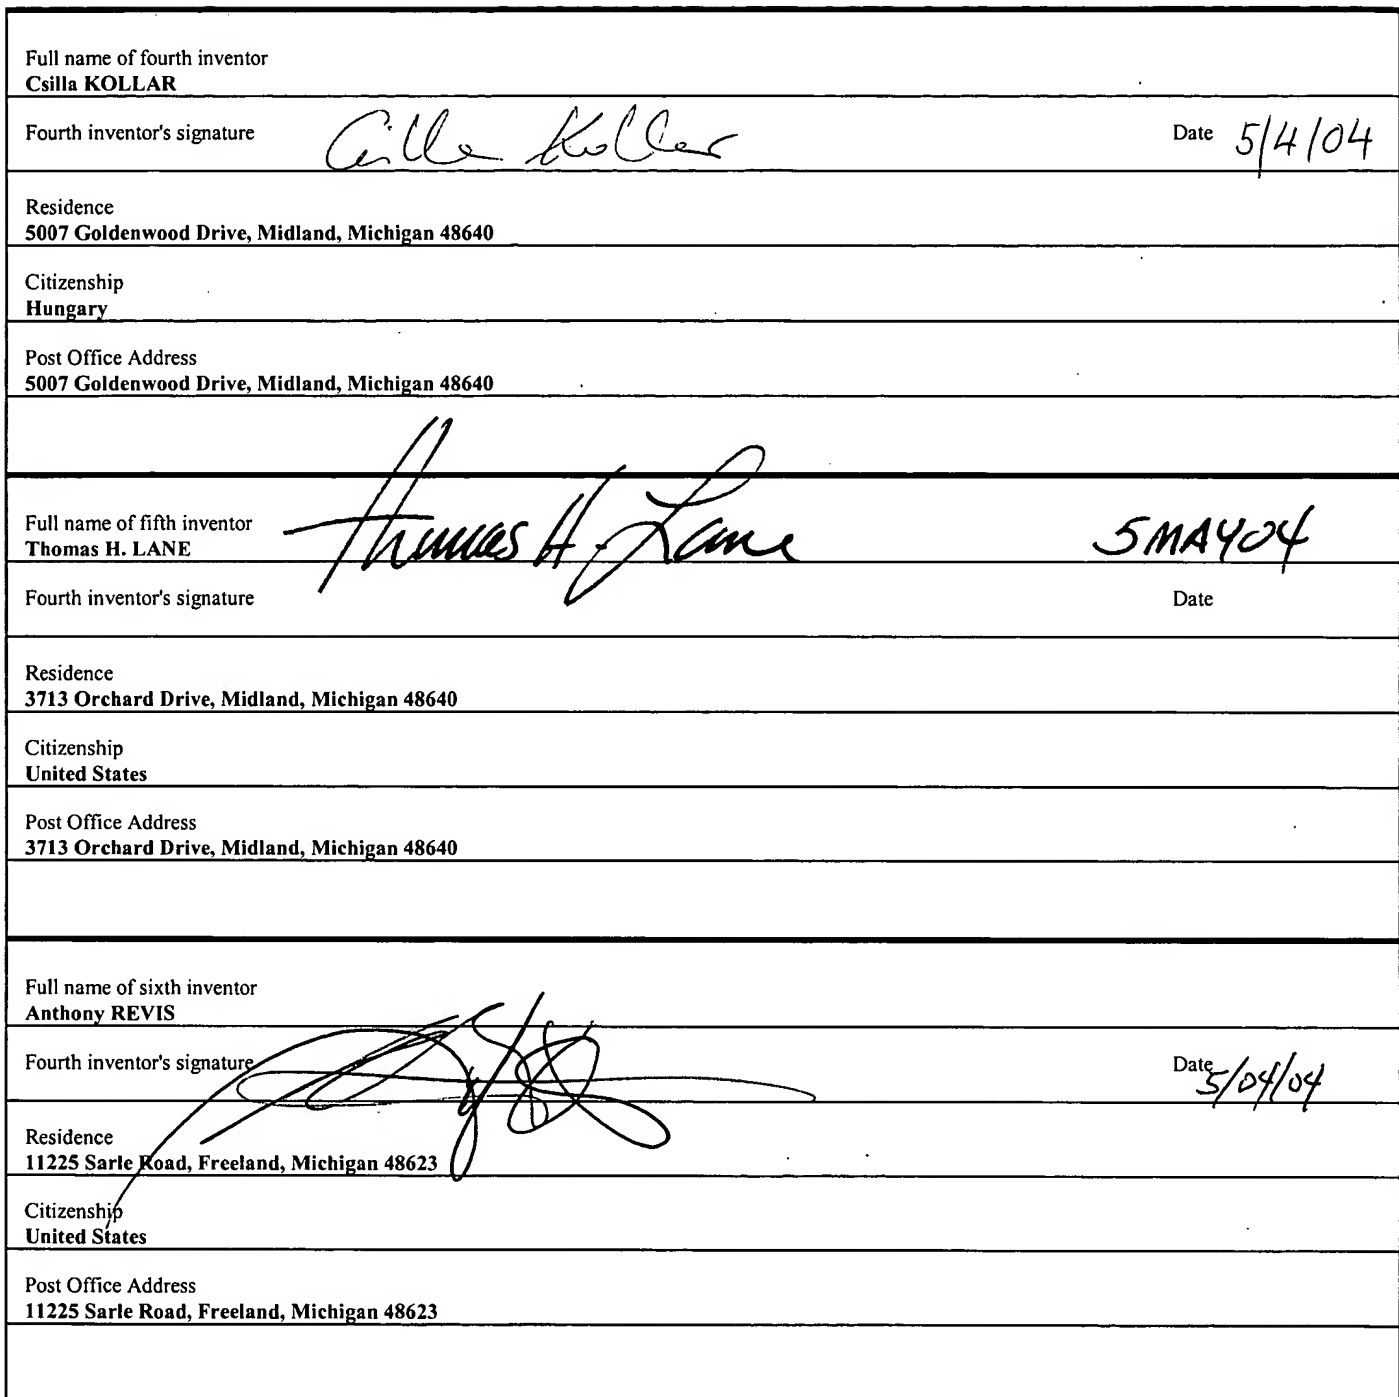 Full name of fourth inventor
Csilla KOLLAR
Fourth inventor's signature Csilla Kollar Date 5/4/04
Residence
5007 Goldenwood Drive, Midland, Michigan 48640
Citizenship
Hungary
Post Office Address
5007 Goldenwood Drive, Midland, Michigan 48640
Full name of fifth inventor
Thomas H. LANE Thomas H. Lane 5MAY04
Fourth inventor's signature Date
Residence
3713 Orchard Drive, Midland, Michigan 48640
Citizenship
United States
Post Office Address
3713 Orchard Drive, Midland, Michigan 48640
Full name of sixth inventor
Anthony REVIS
Fourth inventor's signature Date 5/04/04
Residence
11225 Sarle Road, Freeland, Michigan 48623
Citizenship
United States
Post Office Address
11225 Sarle Road, Freeland, Michigan 48623